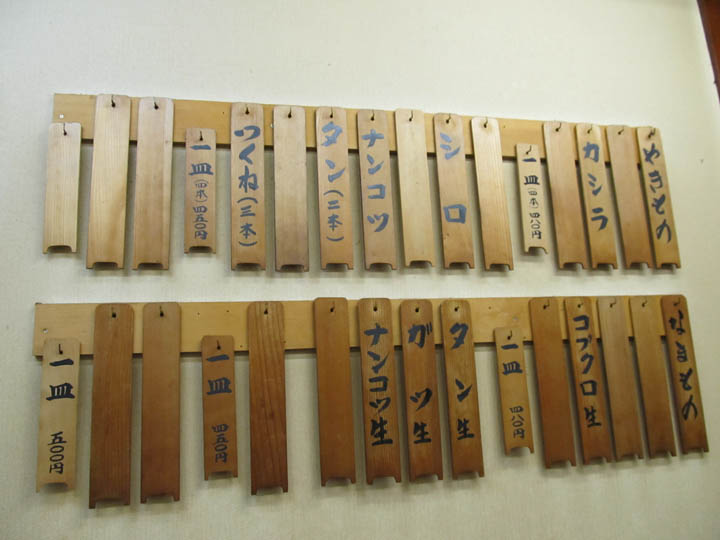 やきもの
カシラ
一皿(四本)四八〇円
シロ
ナンコツ
タン(二本)
つくね(三本)
一皿(四本)四五〇円
なまもの
コブクロ生
一皿 四八〇円
タン生
ガツ生
ナンコツ生
一皿 四五〇円
一皿 五〇〇円